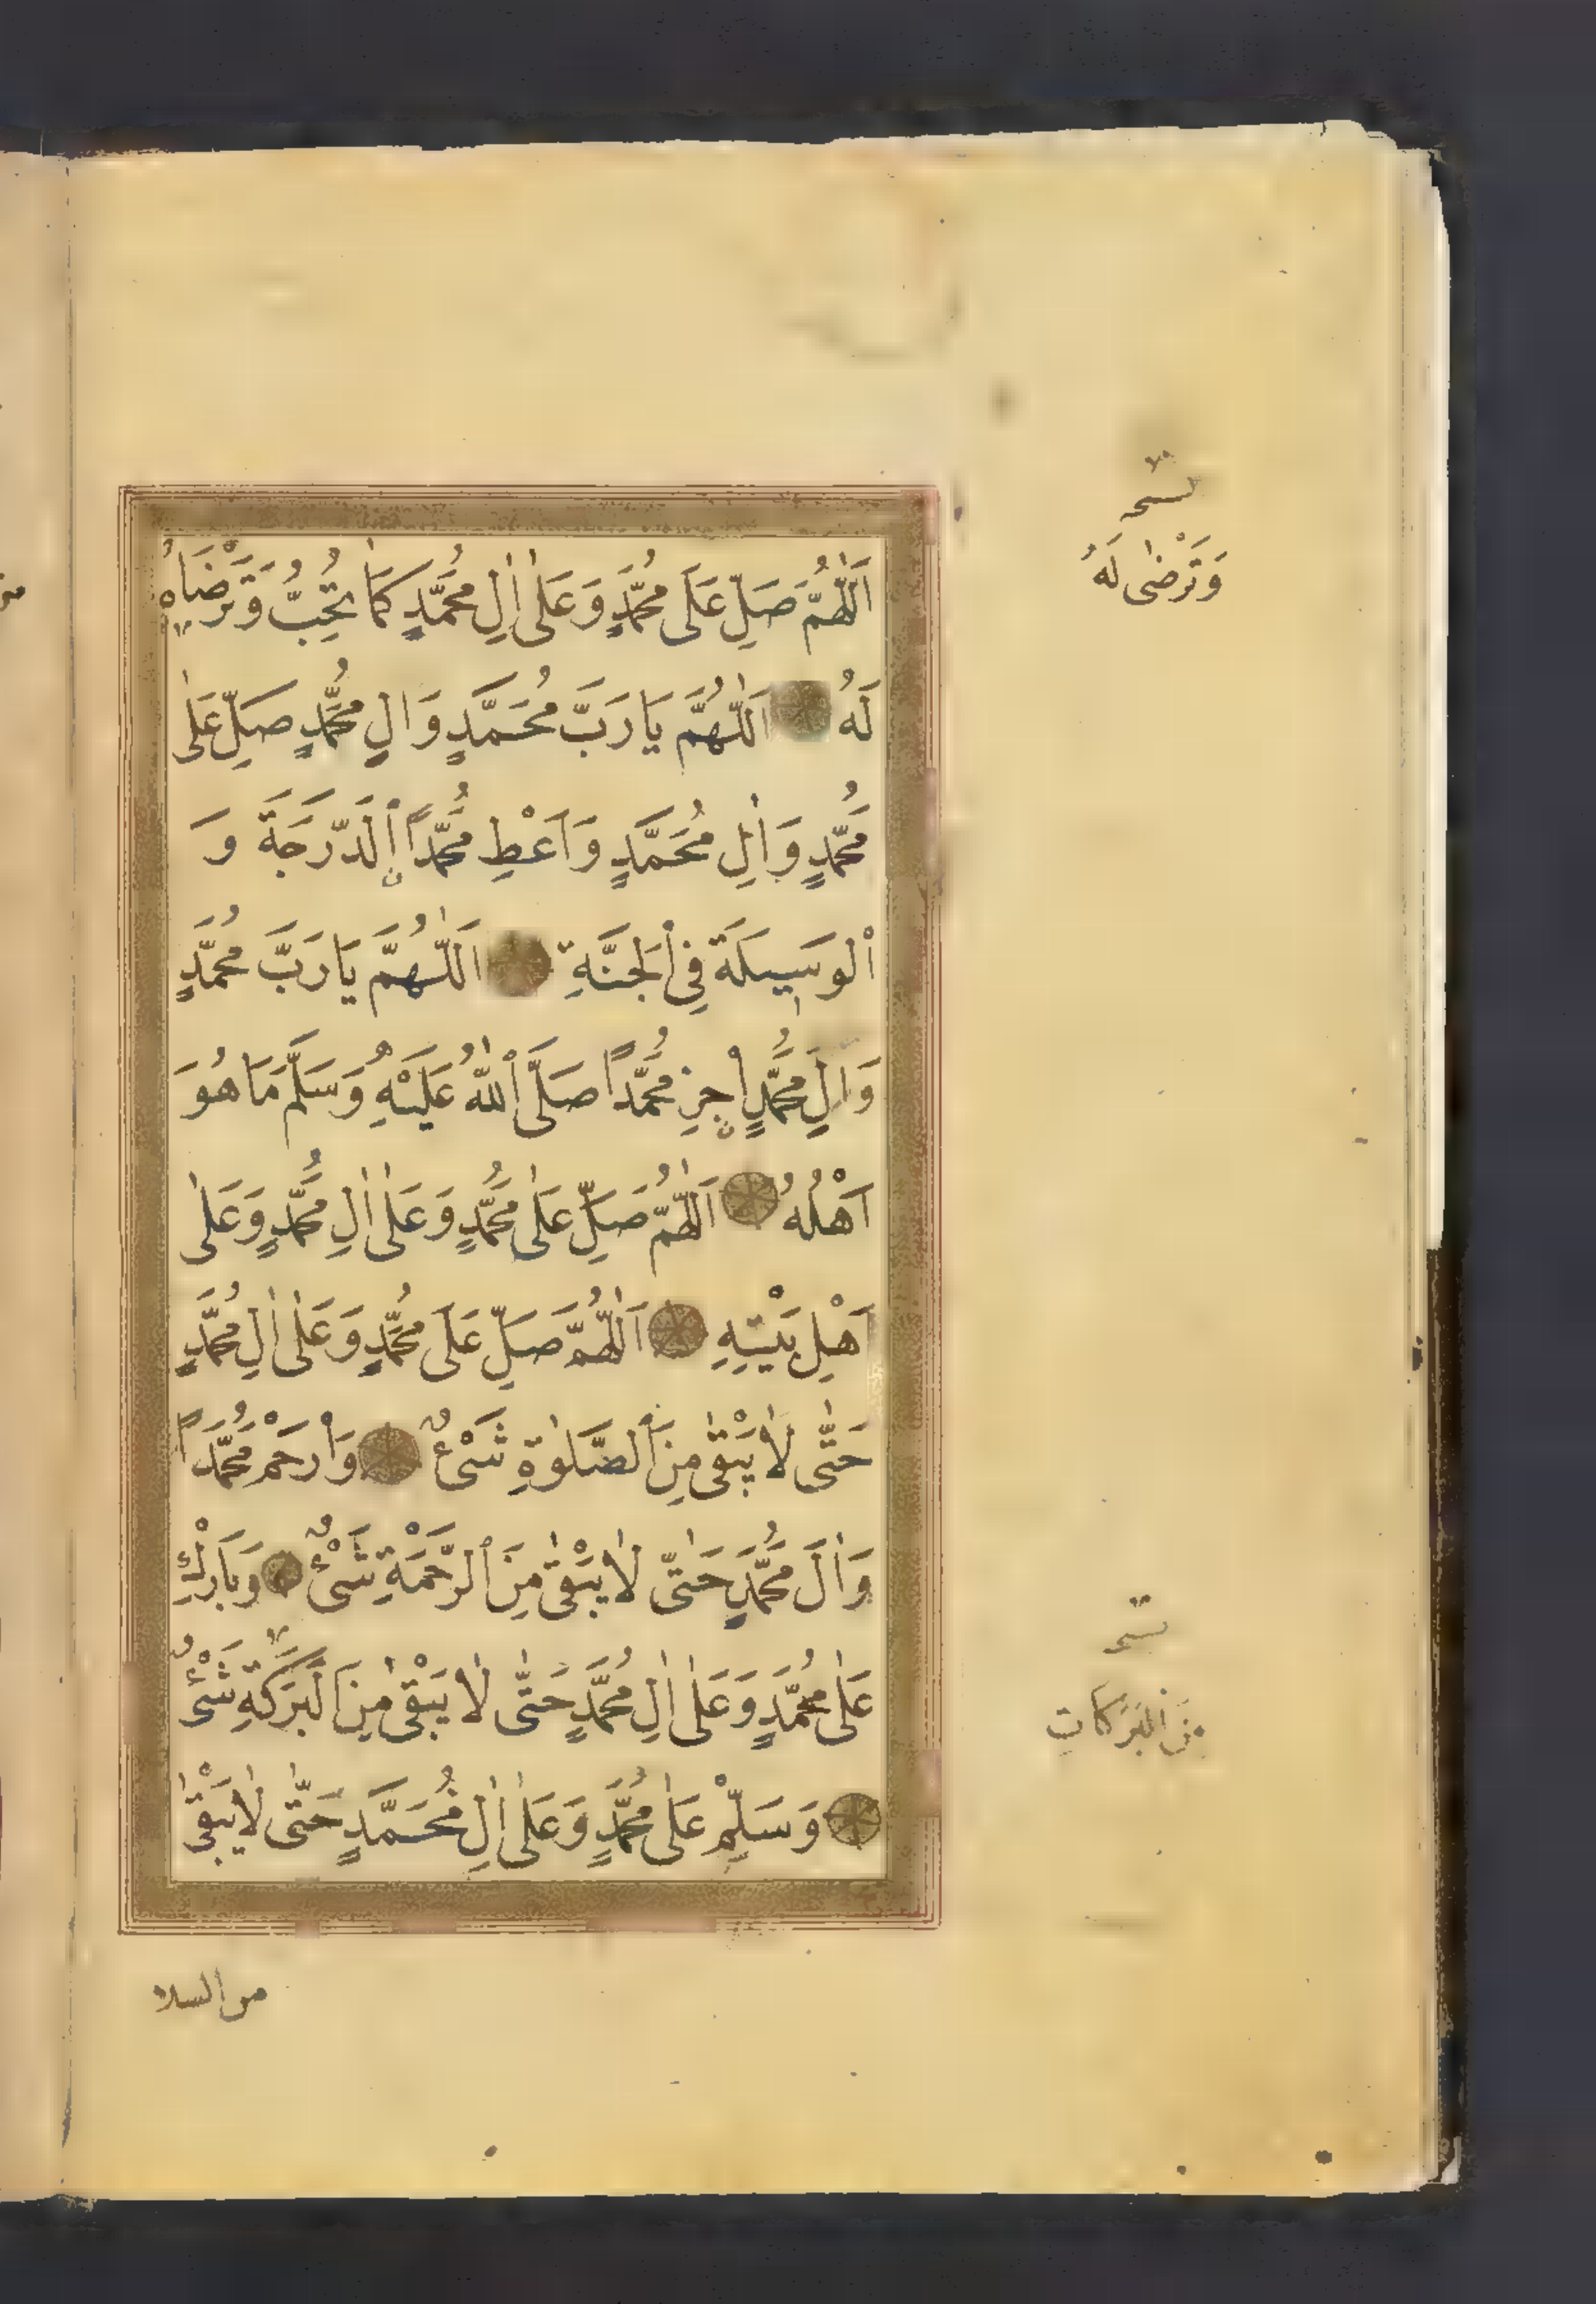 اَللّٰهُمَّ صَلِّ عَلَى مُحَمَّدٍ وَعَلٰى اٰلِ مُحَمَّدٍ كَمَا تُحِبُّ وَتَرْضَاهُ
لَهُ اَللّٰهُمَّ يَا رَبَّ مُحَمَّدٍ وَاٰلِ مُحَمَّدٍ صَلِّ عَلٰى
مُحَمَّدٍ وَاٰلِ مُحَمَّدٍ وَاَعْطِ مُحَمَّدًا اۨلدَّرَجَةَ وَ
الْوَسِيلَةَ فِي الْجَنَّةِ اَللّٰهُمَّ يَا رَبَّ مُحَمَّدٍ
وَاٰلِ مُحَمَّدٍ اجْزِ مُحَمَّدًا صَلَّى اللّٰهُ عَلَيْهِ وَسَلَّمَ مَا هُوَ
اَهْلُهُ اَللّٰهُمَّ صَلِّ عَلٰى مُحَمَّدٍ وَعَلٰى اٰلِ مُحَمَّدٍ وَعَلٰى
اَهْلِ بَيْتِهِ اَللّٰهُمَّ صَلِّ عَلَى مُحَمَّدٍ وَعَلٰى اٰلِ مُحَمَّدٍ
حَتّٰى لَا يَبْقٰى مِنَ الصَّلٰوةِ شَىْءٌ وَارْحَمْ مُحَمَّدًا
وَاٰلَ مُحَمَّدٍ حَتّٰى لَا يَبْقٰى مِنَ الرَّحْمَةِ شَىْءٌ وَبَارِكْ
عَلٰى مُحَمَّدٍ وَعَلٰى اٰلِ مُحَمَّدٍ حَتّٰى لَا يَبْقٰى مِنَ الْبَرَكَةِ شَىْءٌ
وَسَلِّمْ عَلٰى مُحَمَّدٍ وَعَلٰى اٰلِ مُحَمَّدٍ حَتّٰى لَا يَبْقٰى
من السلا
نسخه
وَتَرْضٰى لَهُ
نسخه
مِنَ الْبَرَكَاتِ